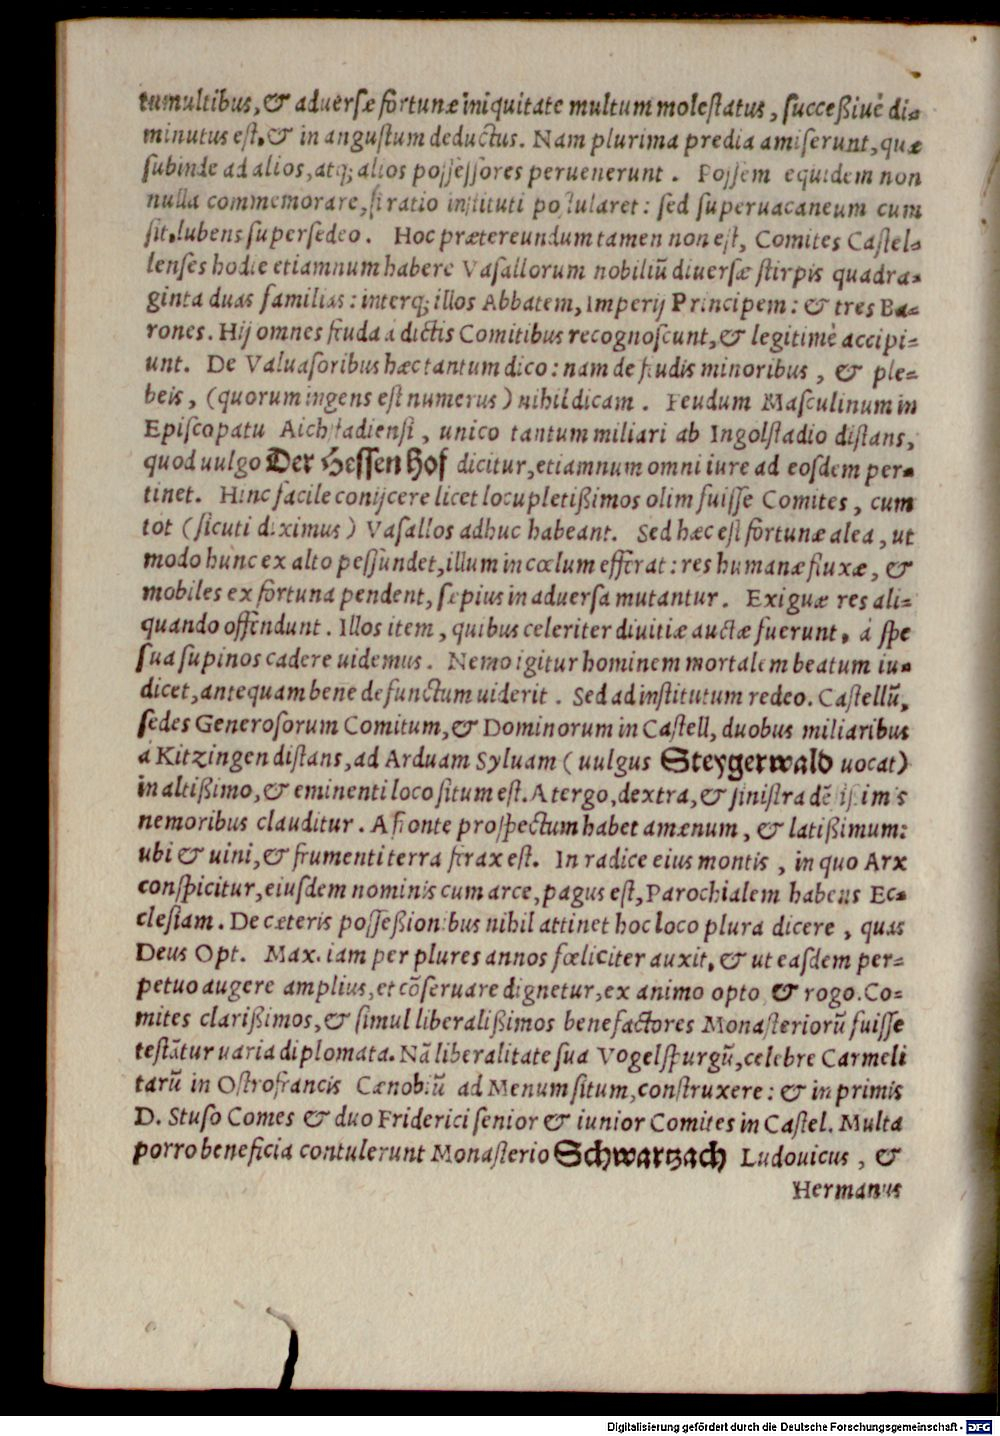 tumultibus, & aduersæ fortunæ iniquitate multum molestatus, successiuè di=
minutus est, & in angustum deductus. Nam plurima predia amiserunt, quæ
subinde ad alios, atq; alios possessores peruenerunt. Possem equidem non
nulla commemorare, si ratio instituti postularet: sed superuacaneum cum
sit, lubens supersedeo. Hoc prætereundum tamen non est, Comites Castel=
lenses hodie etiamnum habere Vasallorum nobiliū diuersæ stirpis quadra=
ginta duas familias: interq; illos Abbatem, Imperij Principem: & tres Ba=
rones. Hij omnes feuda à dictis Comitibus recognoscunt, & legitimè accipi=
unt. De Valuasoribus hæc tantum dico: nam de feudis minoribus, & ple=
beis, (quorum ingens est numerus) nihil dicam. Feudum Masculinum in
Episcopatu Aichstadiensi, unico tantum miliari ab Ingolstadio distans,
quod uulgo Der Hessen Hof dicitur, etiamnum omni iure ad eosdem per=
tinet. Hinc facile conijcere licet locupletißimos olim fuisse Comites, cum
tot (sicuti diximus) Vasallos adhuc habeant. Sed hæc est fortunæ alea, ut
modo hunc ex alto pessundet, illum in cœlum efferat: res humanæ fluxæ, &
mobiles ex fortuna pendent, sæpius in aduersa mutantur. Exiguæ res ali=
quando offendunt. Illos item, quibus celeriter diuitiæ auctæ fuerunt, á spe
sua supinos cadere uidemus. Nemo igitur hominem mortalem beatum iu=
dicet, antequam bene defunctum uiderit. Sed ad institutum redeo. Castellū,
sedes Generosorum Comitum, & Dominorum in Castell, duobus miliaribus
á Kitzingen distans, ad Arduam Syluam (uulgus Steygerwald uocat)
in altißimo, & eminenti loco situm est. A tergo, dextra, & sinistra dēsißimis
nemoribus clauditur. A fronte prospectum habet amænum, & latißimum:
ubi & uini, & frumenti terra ferax est. In radice eius montis, in quo Arx
conspicitur, eiusdem nominis cum arce, pagus est, Parochialem habens Ec=
clesiam. De cæteris posseßionibus nihil attinet hoc loco plura dicere, quas
Deus Opt. Max. iam per plures annos fœliciter auxit, & ut easdem per=
petuo augere amplius, et cōseruare dignetur, ex animo opto & rogo. Co=
mites clarißimos, & simul liberalißimos benefactores Monasteriorū fuisse
testātur uaria diplomata. Nā liberalitate sua Vogelspurgū, celebre Carmeli
tarū in Ostrofrancis Cænobiū ad Menum situm, construxere: & in primis
D. Stuso Comes & duo Friderici senior & iunior Comites in Castel. Multa
porro beneficia contulerunt Monasterio Schwartzach Ludouicus, &
Hermanus
Digitalisierung gefördert durch die Deutsche Forschungsgemeinschaft - DFG